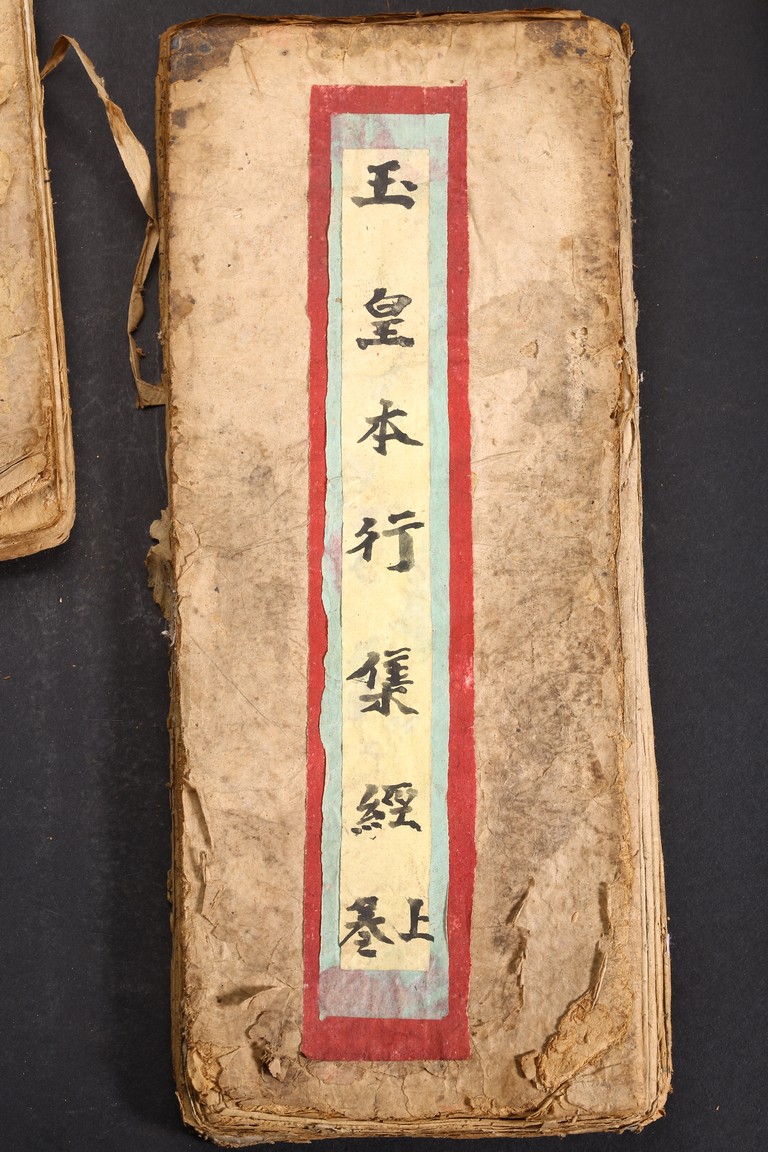 玉皇本行集經卷上